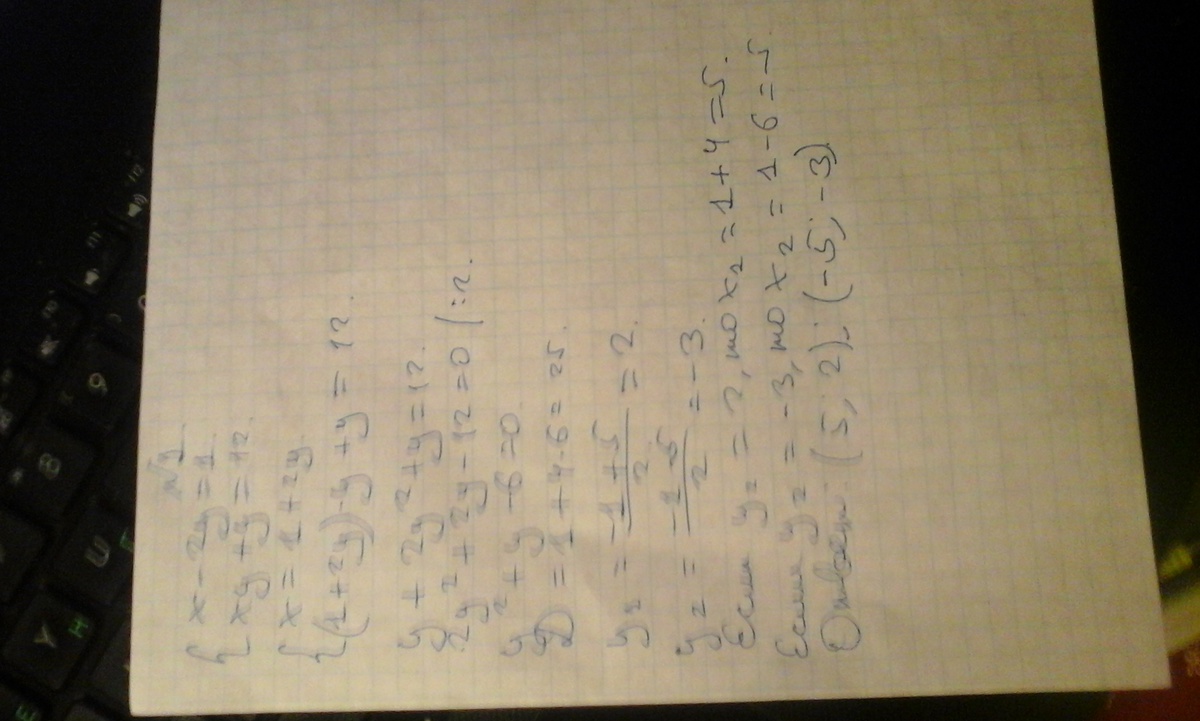 №4.
{ x - 2y = 1.
{ xy + y = 12.
{ x = 1 + 2y
{ (1 + 2y)·y + y = 12.
y + 2y² + y = 12.
2y² + 2y - 12 = 0 | :2.
y² + y - 6 = 0.
D = 1 + 4·6 = 25.
y₁ = (-1 + 5)/2 = 2.
y₂ = (-1 - 5)/2 = -3.
Если y₁ = 2, то x₁ = 1 + 4 = 5.
Если y₂ = -3, то x₂ = 1 - 6 = -5.
Ответ: (5; 2); (-5; -3)